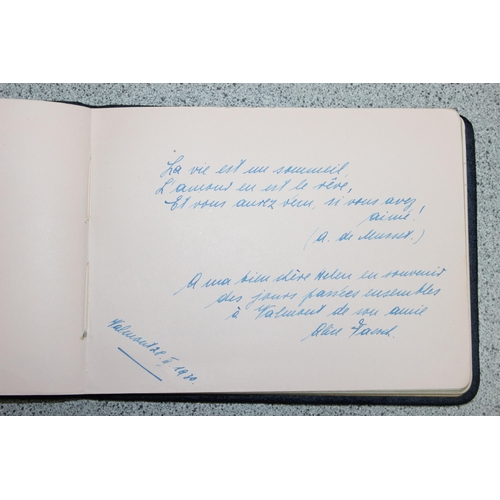 "La vie est un sommeil,
L'amour en est le rêve,
Et vous aurez vécu, si vous avez
aimé!
(A. de Musset.)
A ma bien chère Helen en souvenir
des jours passées ensembles
à Valmont de son amie
Alice
Valmont 28. V. 1930.